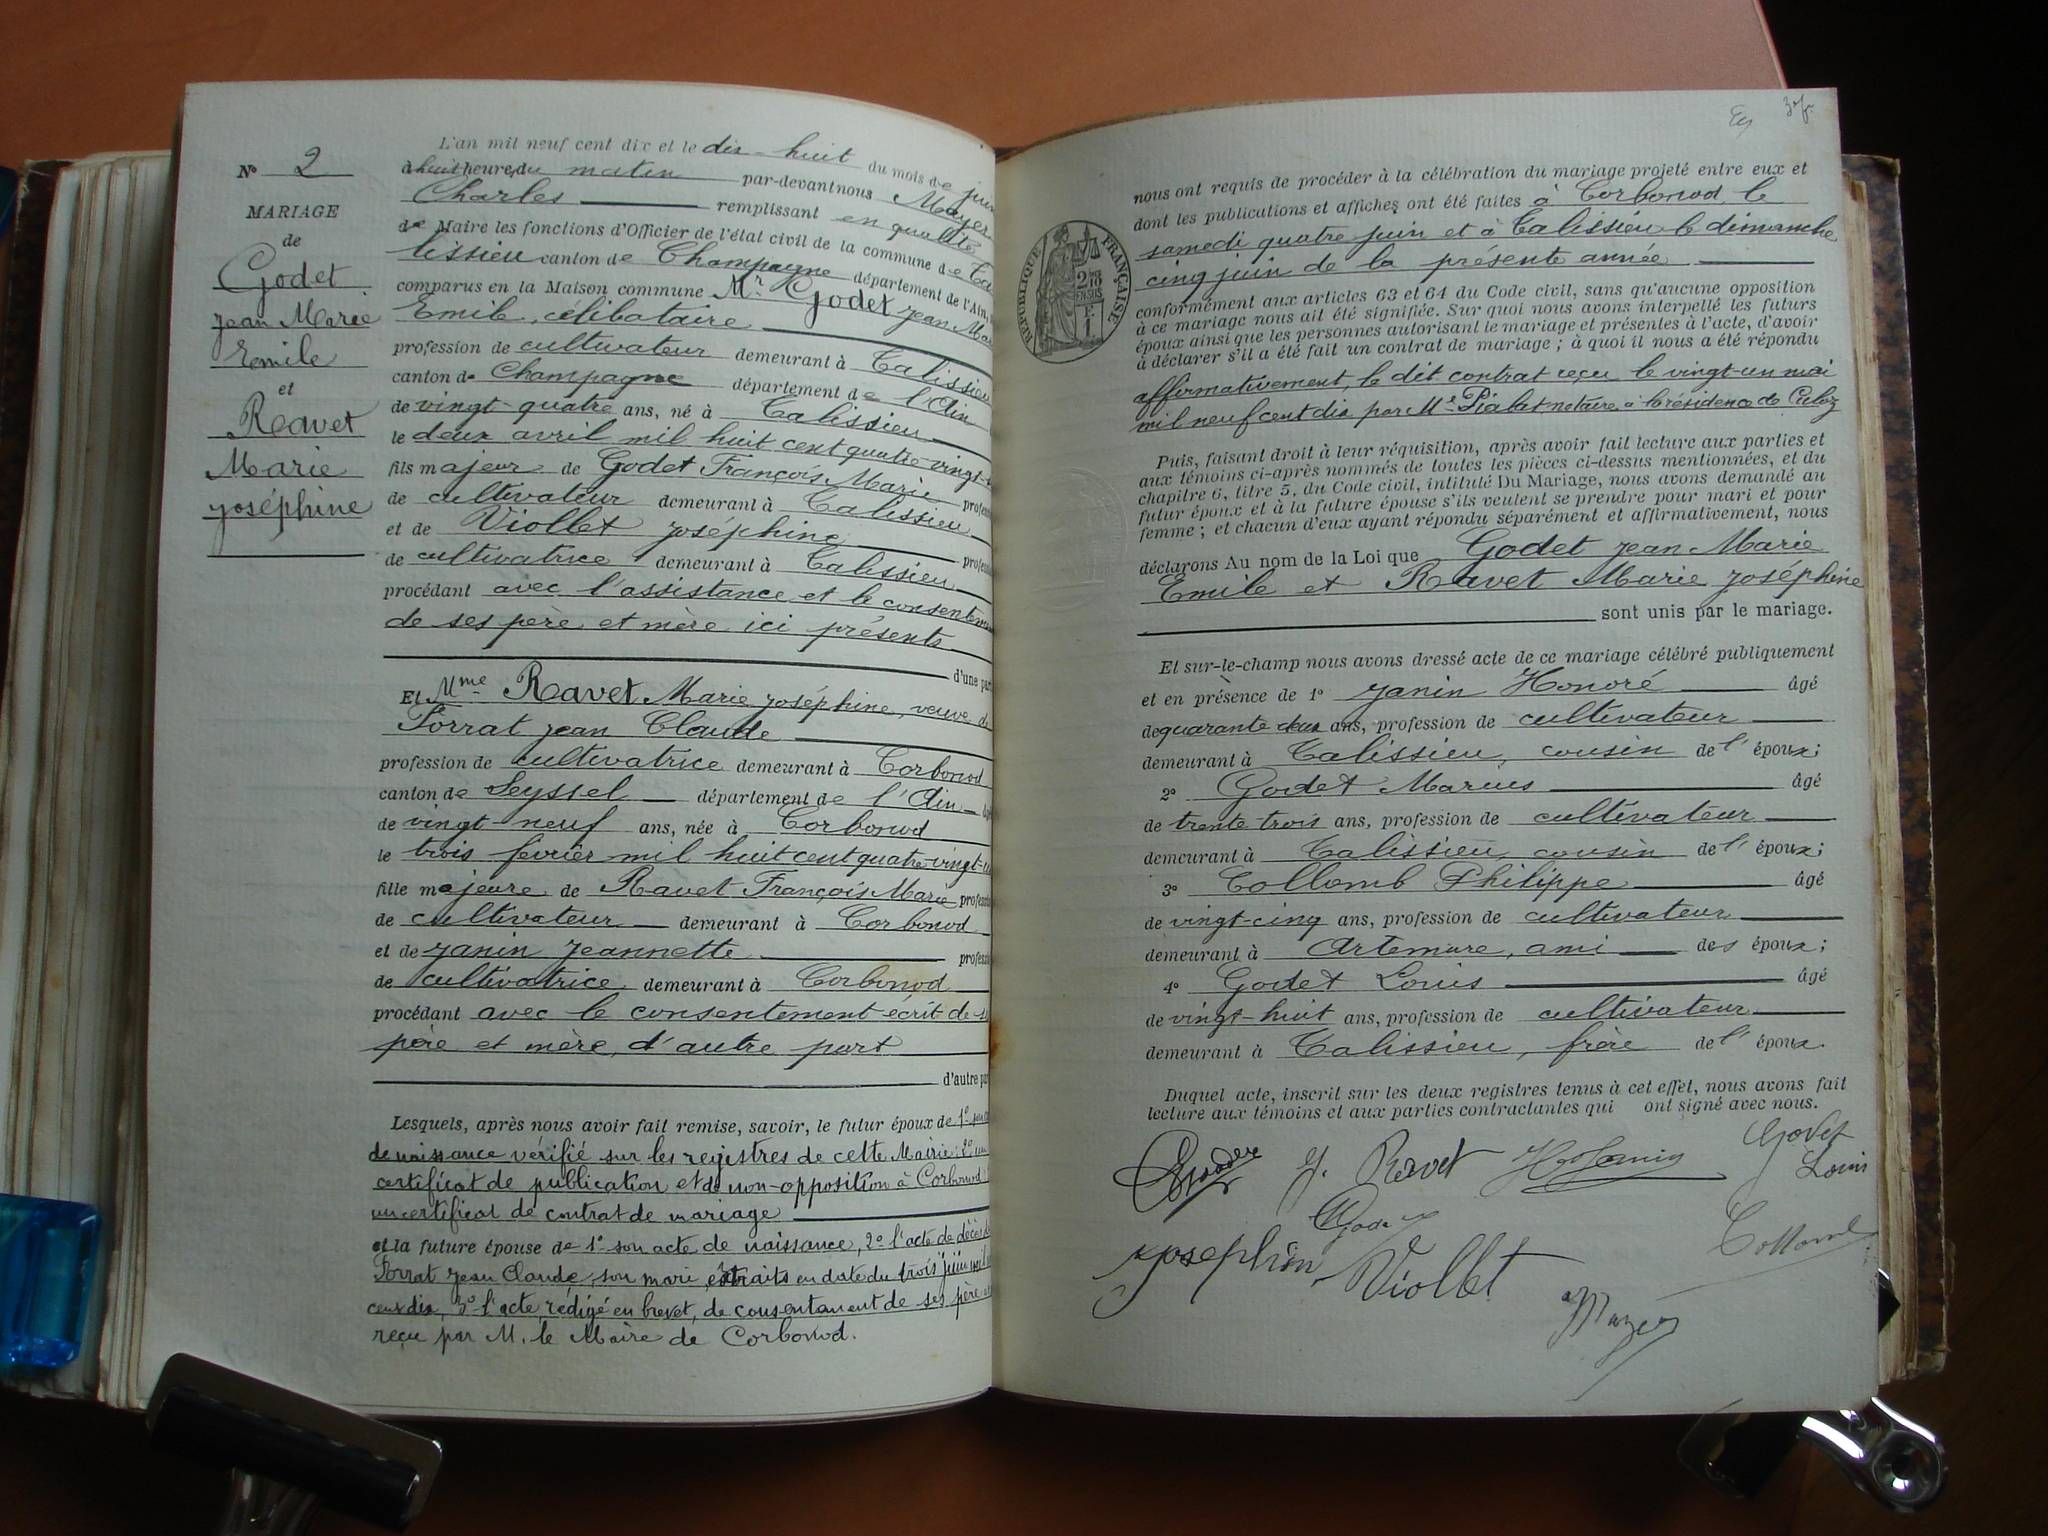 N° 2
MARIAGE
de
Godet
Jean Marie
Emile
et
Ravet
Marie
Joséphine
L'an mil neuf cent dix et le dix-huit du mois de juin
à huit heures du matin par-devant nous Mayer
Charles remplissant en qualité
de Maire les fonctions d'Officier de l'état civil de la commune de Ta
lissieu canton de Champagne département de l'Ain,
comparus en la Maison commune Mr Godet Jean Ma
Emile, célibataire
profession de cultivateur demeurant à Talissieu
canton de Champagne département de l'Ain
de vingt-quatre ans, né à Talissieu
le deux avril mil huit cent quatre-vingt-
fils majeur de Godet François Marie profes
de cultivateur demeurant à Talissieu
et de Viollet Joséphine profes
de cultivatrice demeurant à Talissieu
procédant avec l'assistance et le consentem
de ses père et mère ici présents
d'une part
Et Mme Ravet Marie Joséphine, veuve de
Forrat Jean Claude
profession de cultivatrice demeurant à Corbonod
canton de Seyssel département de l'Ain
de vingt-neuf ans, née à Corbonod
le trois février mil huit cent quatre-vingt-u
fille majeure de Ravet François Marie profes
de cultivateur demeurant à Corbonod
et de Janin Jeannette profes
de cultivatrice demeurant à Corbonod
procédant avec le consentement écrit de s
père et mère, d'autre part
d'autre par
Lesquels, après nous avoir fait remise, savoir, le futur époux de 1° son
de naissance vérifié sur les registres de cette Mairie 2° un
certificat de publication et de non-opposition à Corbonod
un certificat de contrat de mariage
et la future épouse de 1° son acte de naissance, 2° l'acte de décès de
Forrat Jean Claude, son mari, extraits en date du trois juin mil
cent dix, 3° l'acte, rédigé en brevet, de consentement de ses père et
reçu par M. le Maire de Corbonod.
nous ont requis de procéder à la célébration du mariage projeté entre eux et
dont les publications et affiches ont été faites à Corbonod le
samedi quatre juin et à Talissieu le dimanche
cinq juin de la présente année
conformément aux articles 63 et 64 du Code civil, sans qu'aucune opposition
à ce mariage nous ait été signifiée. Sur quoi nous avons interpellé les futurs
époux ainsi que les personnes autorisant le mariage et présentes à l'acte, d'avoir
à déclarer s'il a été fait un contrat de mariage ; à quoi il nous a été répondu
affirmativement, le dit contrat reçu le vingt-un mai
mil neuf cent dix par Me Pialat notaire à la résidence de Culoz
RÉPUBLIQUE FRANÇAISE
Puis, faisant droit à leur réquisition, après avoir fait lecture aux parties et
aux témoins ci-après nommés de toutes les pièces ci-dessus mentionnées, et du
chapitre 6, titre 5, du Code civil, intitulé Du Mariage, nous avons demandé au
futur époux et à la future épouse s'ils veulent se prendre pour mari et pour
femme ; et chacun d'eux ayant répondu séparément et affirmativement, nous
déclarons Au nom de la Loi que Godet Jean Marie
Emile et Ravet Marie Joséphine
sont unis par le mariage.
Et sur-le-champ nous avons dressé acte de ce mariage célébré publiquement
et en présence de 1° Janin Honoré âgé
de quarante deux ans, profession de cultivateur
demeurant à Talissieu, cousin de l'époux;
2° Godet Marius âgé
de trente-trois ans, profession de cultivateur
demeurant à Talissieu, cousin de l'époux;
3° Collomb Philippe âgé
de vingt-cinq ans, profession de cultivateur
demeurant à Artemare, ami des époux;
4° Godet Louis âgé
de vingt-huit ans, profession de cultivateur
demeurant à Talissieu, frère de l'époux.
Duquel acte, inscrit sur les deux registres tenus à cet effet, nous avons fait
lecture aux témoins et aux parties contractantes qui ont signé avec nous.
J. Ravet
Godet
Louis
Josephin Viollet
Collomb